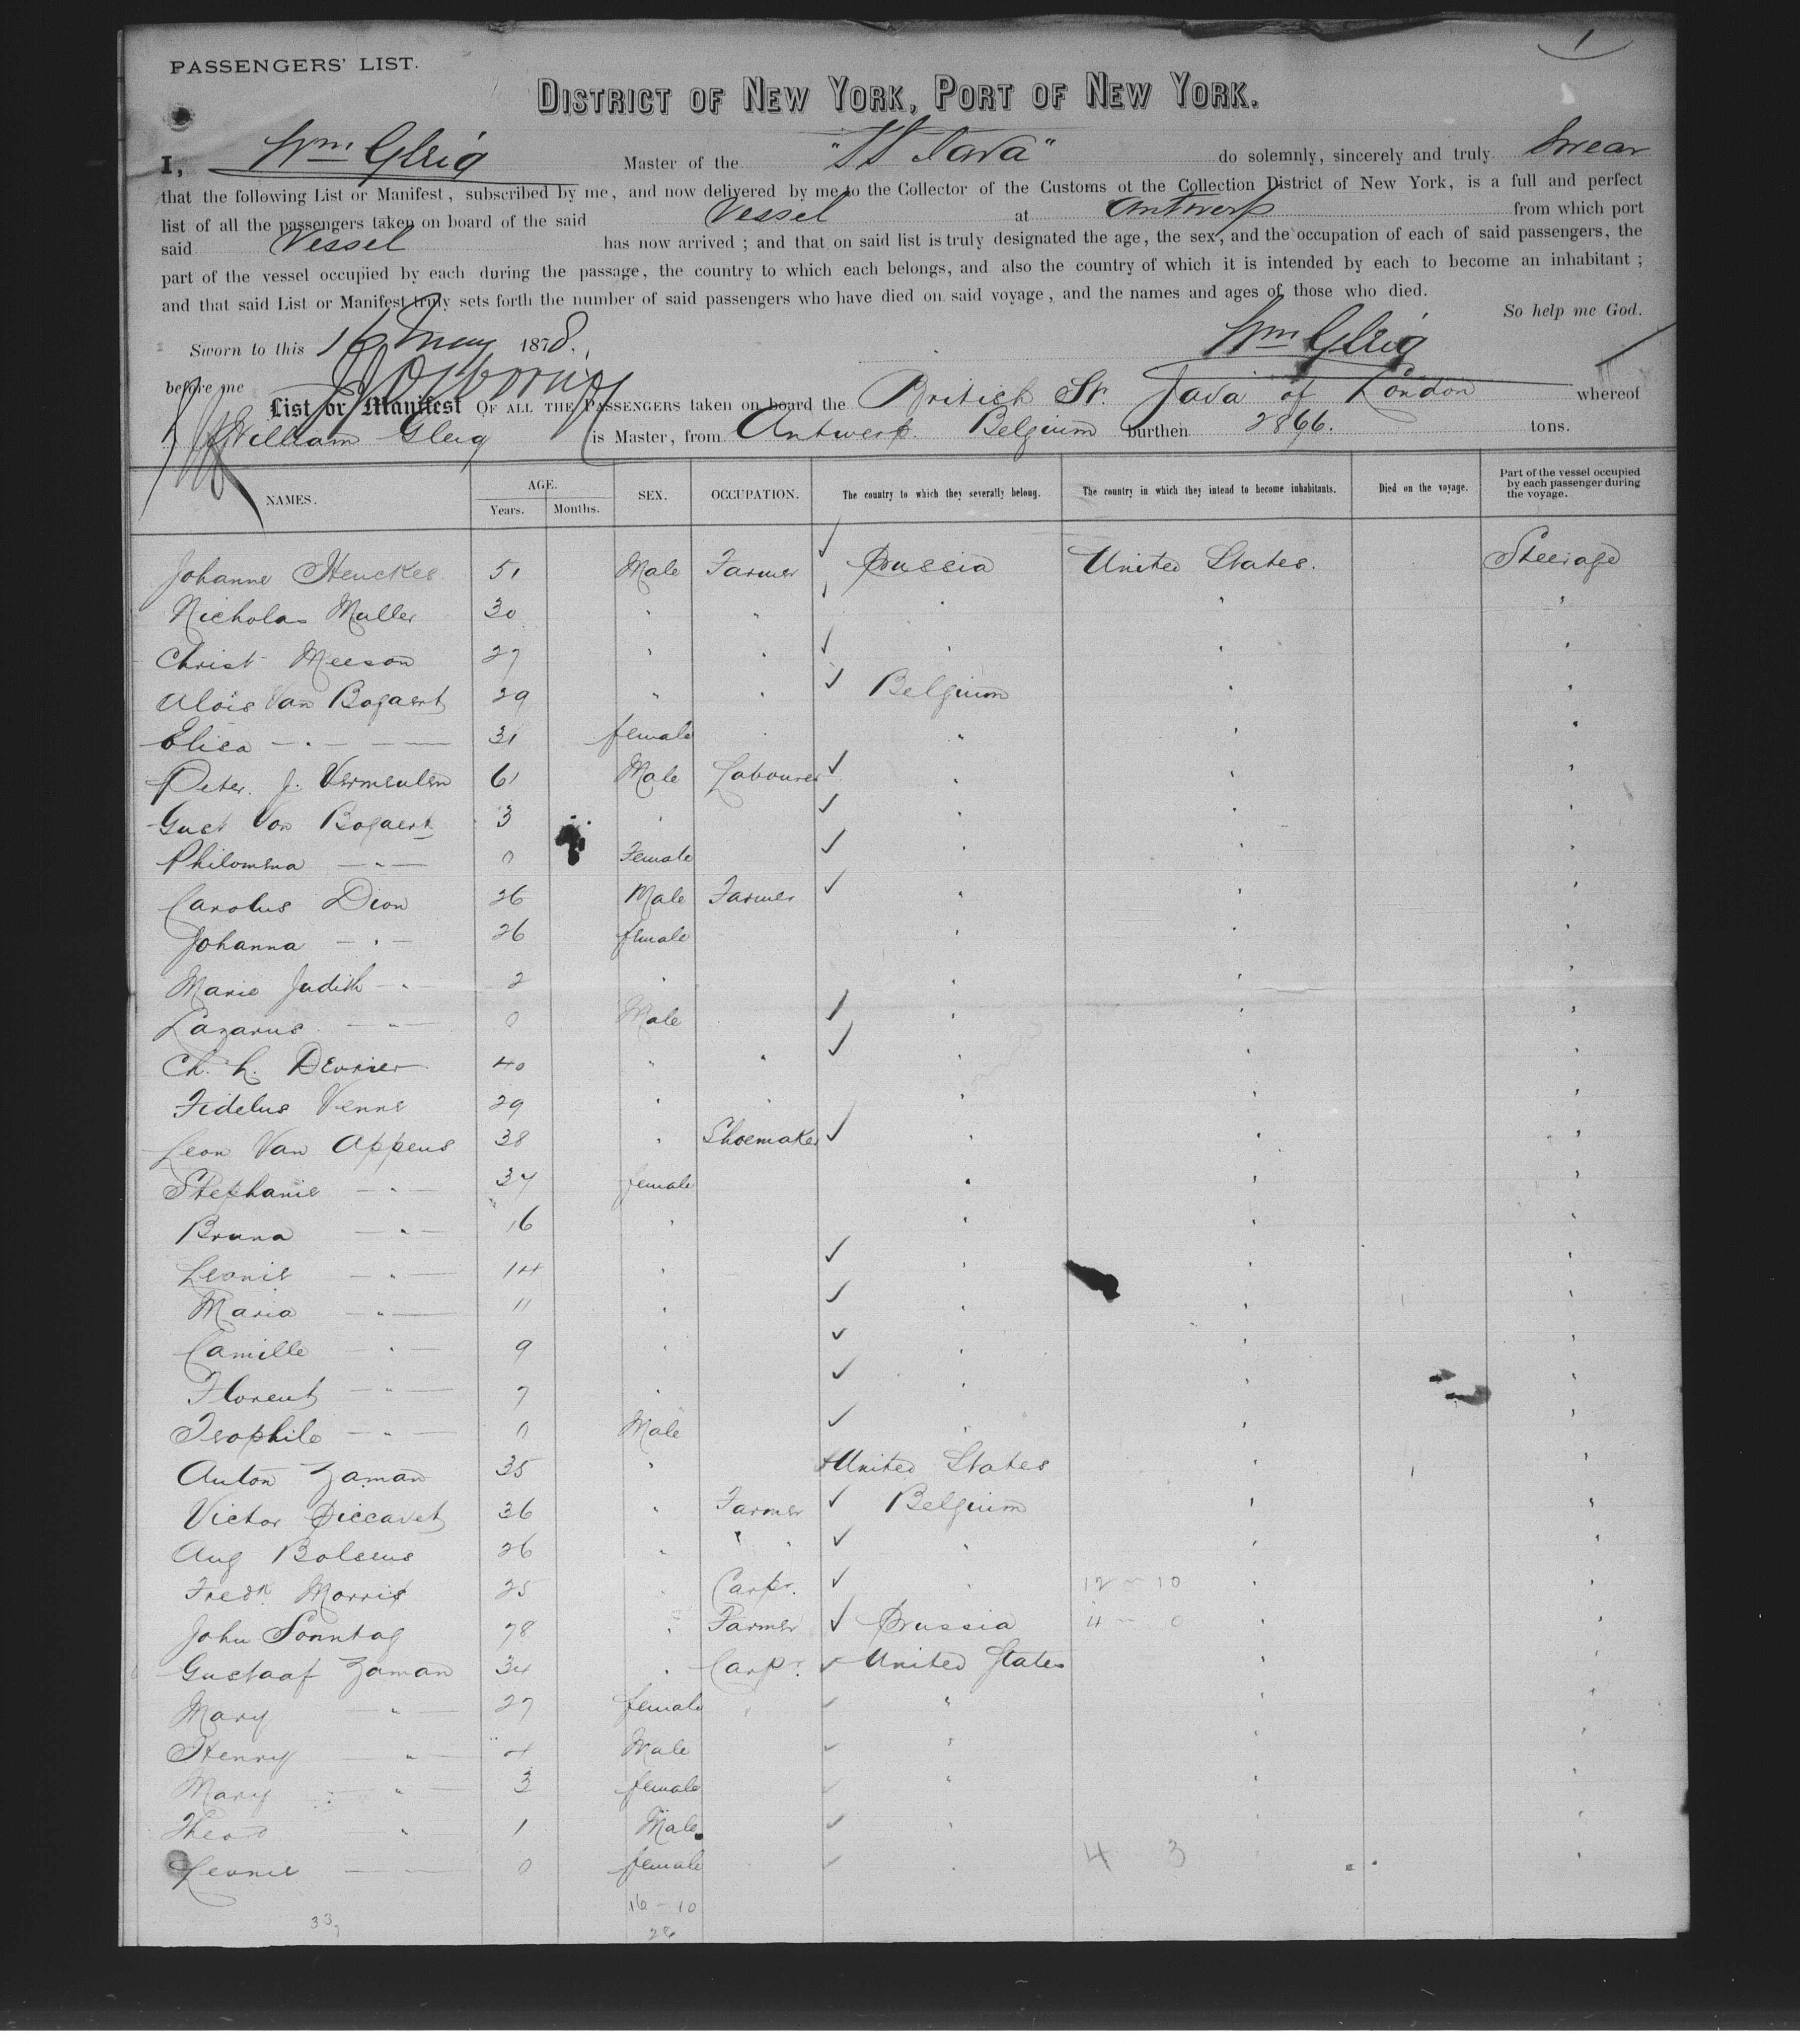 1
PASSENGERS' LIST.
DISTRICT OF NEW YORK, PORT OF NEW YORK.
I, Wm Gleig Master of the "SS Java" do solemnly, sincerely and truly Swear
that the following List or Manifest, subscribed by me, and now delivered by me to the Collector of the Customs of the Collection District of New York, is a full and perfect
list of all the passengers taken on board of the said Vessel at Antwerp from which port
said Vessel has now arrived; and that on said list is truly designated the age, the sex, and the occupation of each of said passengers, the
part of the vessel occupied by each during the passage, the country to which each belongs, and also the country of which it is intended by each to become an inhabitant;
and that said List or Manifest truly sets forth the number of said passengers who have died on said voyage, and the names and ages of those who died.
So help me God.
Sworn to this 16 May 1878. Wm Gleig
before me
List or Manifest OF ALL THE PASSENGERS taken on board the British Sr. Java of London whereof
William Gleig is Master, from Antwerp. Belgium burthen 2866. tons.
NAMES. AGE. Years. Months. SEX. OCCUPATION. The country to which they severally belong. The country in which they intend to become inhabitants. Died on the voyage. Part of the vessel occupied by each passenger during the voyage.
Johanne Henckes 51 Male Farmer ✓ Prussia United States. Steerage
Nicholas Muller 30 " " ✓ " " "
Christ Meeson 27 " " ✓ " " "
Alois Van Bogaert 29 " " ✓ Belgium " "
Elisa — " — 31 female " " " "
Peter. J. Vermeulen 61 Male Labourer ✓ " " "
Gust Von Bogaert 3 " ✓ " " "
Philomena — " — 0 Female ✓ " " "
Carolus Dion 26 Male Farmer ✓ " " "
Johanna — " — 26 female " " "
Marie Judith — " — 2 " " " "
Lazarus — " — 0 Male ✓ " " "
Ch. L. 40 " " ✓ " " "
Fidelus Venne 29 " " " " "
Leon Van Appens 38 " Shoemaker ✓ " " "
Stephanie — " — 37 female " " "
Bruna — " — 16 " " " "
Leonie — " — 14 " ✓ " " "
Maria — " — 11 " ✓ " " "
Camille — " — 9 " ✓ " " "
Florent — " — 7 " ✓ " " "
Teophile — " — 0 Male ✓ " " "
Anton Zaman 35 " ✓ United States " "
Victor 36 " Farmer ✓ Belgium " "
Aug Bolsens 26 " " ✓ " " "
Fredk. Morris 25 " Carpr. ✓ " 12 — 10 " "
John Sonntag 78 " Farmer ✓ Prussia 4 — 0 " "
Gustaaf Zaman 34 " Carpr. ✓ United States " "
Mary — " — 27 female " ✓ " " "
Henry — " — 4 Male ✓ " " "
Mary — " — 3 female ✓ " " "
Theo " 1 Male ✓ " " "
Leonie — " — 0 female ✓ " 4 3 "
16 — 10
33
26